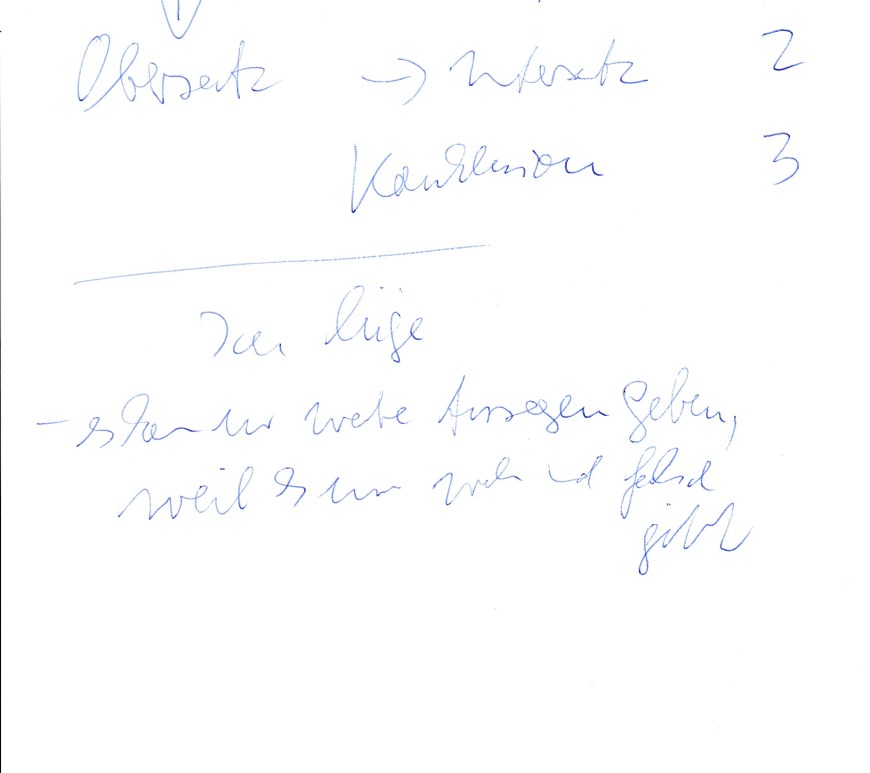 Obersatz → Untersatz 2
Konklusion 3
Lüge
- es kann nur wahre Aussagen geben,
weil es nur wahr und falsch
gibt